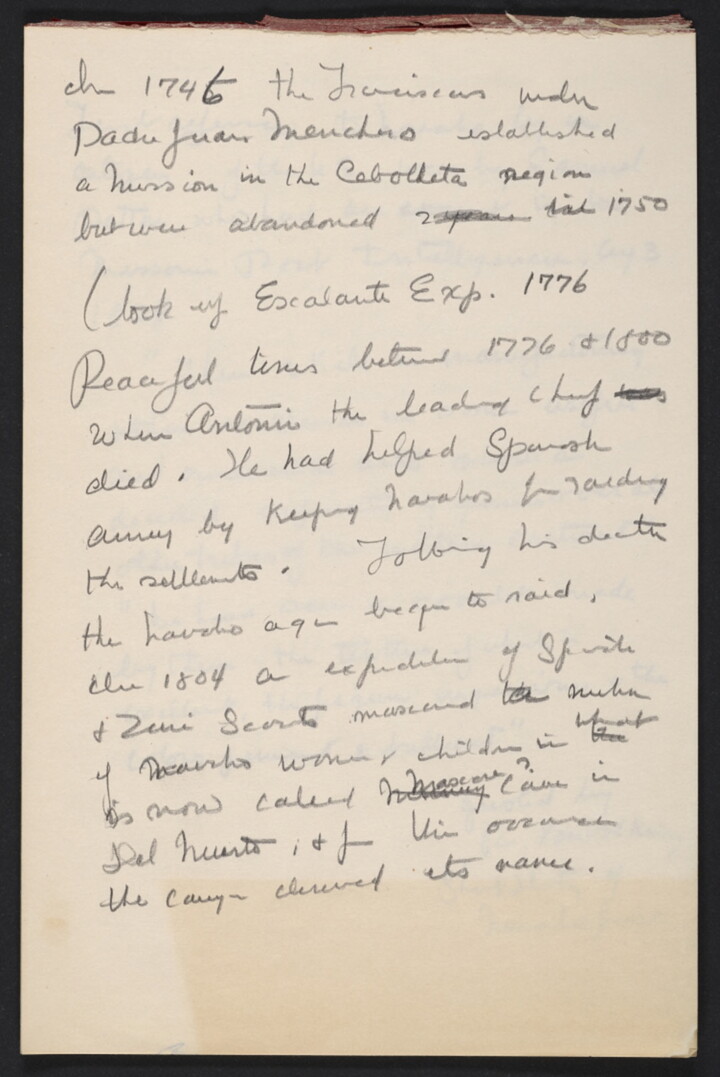 In 1746 the Franciscans under
Padre Juan Menchero established
a Mission in the Cebolleta region
but were abandoned 2 years later 1750
(look up Escalante Exp. 1776
Peaceful times between 1776 & 1800
When Antonio the leading Chief was
died. He had helped Spanish
army by keeping Navahos from raiding
the settlements. Following his death
the Navaho again began to raid.
In 1804 an expedition of Spanish
& Zuni Scouts massacred the number
of Navaho women & children in the what
is now called Mummy Massacre? Cave in
Del Muerto, & from this occurance
the canyon derived its name.